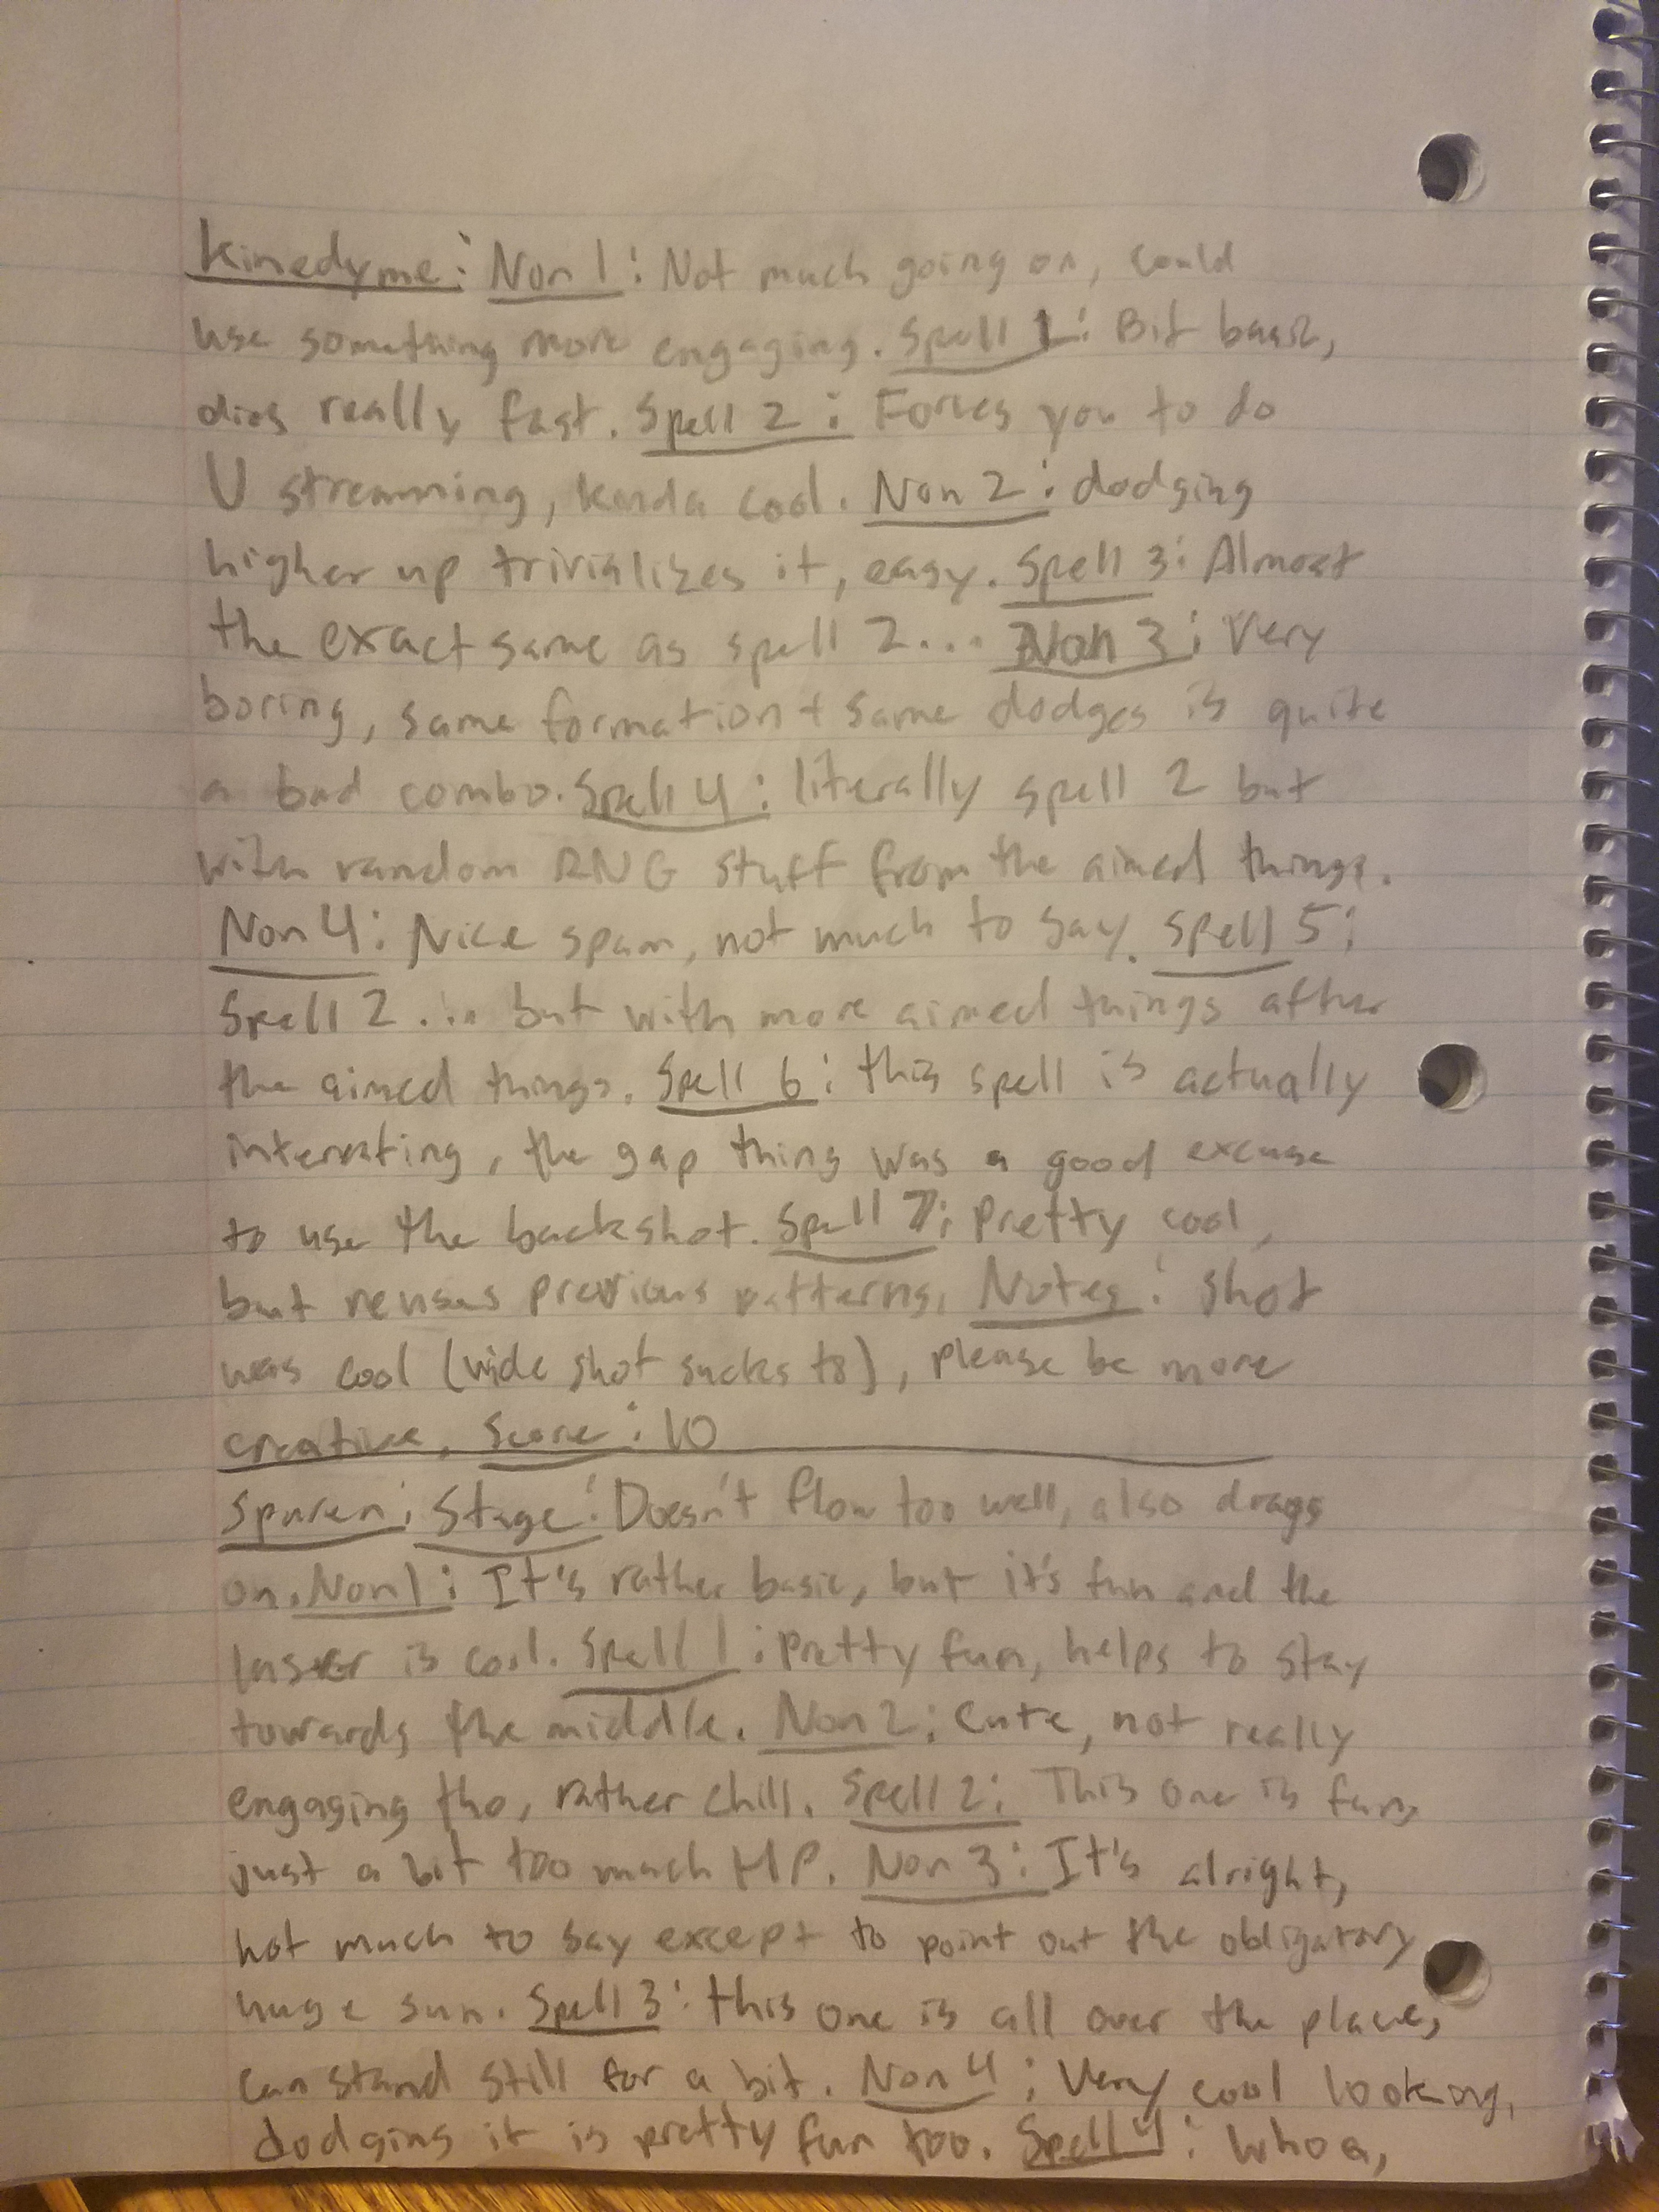 Kinedyme: Non 1: Not much going on, could
use something more engaging. Spell 1: Bit basic,
dies really fast. Spell 2: Forces you to do
U streaming, kinda cool. Non 2: dodging
higher up trivializes it, easy. Spell 3: Almost
the exact same as spell 2... Non 3: Very
boring, same formation + same dodges is quite
a bad combo. Spell 4: literally spell 2 but
with random RNG stuff from the aimed things.
Non 4: Nice spam, not much to say. Spell 5:
Spell 2... but with more aimed things after
the aimed things. Spell 6: this spell is actually
interesting, the gap thing was a good excuse
to use the backshot. Spell 7: Pretty cool,
but reuses previous patterns. Notes: shot
was cool (wide shot sucks tho), please be more
creative. Score: 10
Spuren: Stage: Doesn't flow too well, also drags
on. Non 1: It's rather basic, but it's fun and the
laser is cool. Spell 1: Pretty fun, helps to stay
towards the middle. Non 2: Cute, not really
engaging tho, rather chill. Spell 2: This one is fun,
just a bit too much HP. Non 3: It's alright,
not much to say except to point out the obligatory
huge sun. Spell 3: this one is all over the place,
can stand still for a bit. Non 4: Very cool looking,
dodging it is pretty fun too. Spell 4: Whoa,